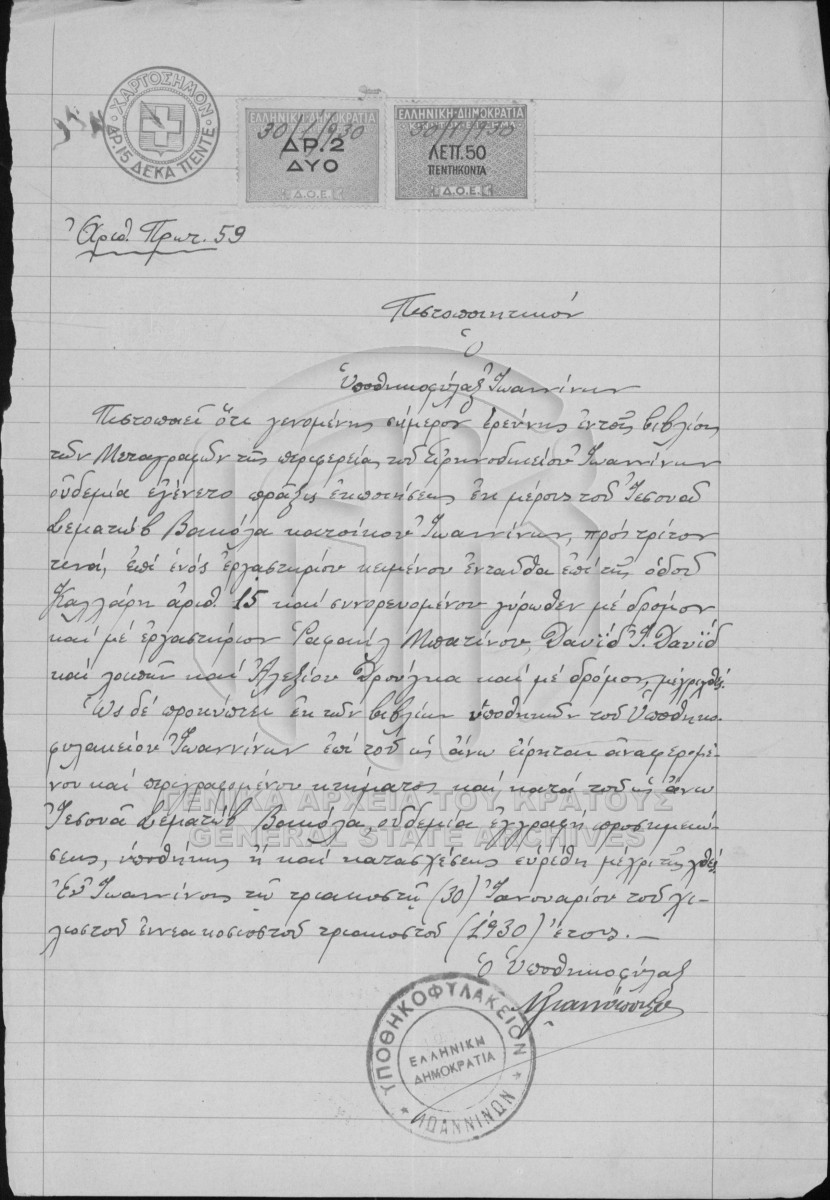 ΧΑΡΤΟΣΗΜΟΝ
ΔΡ. 15 ΔΕΚΑ ΠΕΝΤΕ
ΕΛΛΗΝΙΚΗ ΔΗΜΟΚΡΑΤΙΑ
30/1/930
ΔΡ. 2
ΔΥΟ
Δ.Ο.Ε.
ΕΛΛΗΝΙΚΗ ΔΗΜΟΚΡΑΤΙΑ
30/1/930
ΛΕΠ. 50
ΠΕΝΤΗΚΟΝΤΑ
Δ.Ο.Ε.
Ἀριθ. Πρωτ. 59
Πιστοποιητικόν
Ὁ
Ὑποθηκοφύλαξ Ἰωαννίνων
Πιστοποιεῖ ὅτι γενομένης σήμερον ἐρεύνης ἐν τοῖς βιβλίοις
τῶν Μεταγραφῶν τῆς περιφερείας τοῦ Εἰρηνοδικείου Ἰωαννίνων
οὐδεμία ἐγένετο πρᾶξις ἐκποιήσεως ἐκ μέρους τοῦ Ἰεσουᾶ
Σεματώβ Βακόλα κατοίκου Ἰωαννίνων, πρός τρίτον
τινά, ἐπί ἑνός ἐργαστηρίου κειμένου ἐνταῦθα ἐπί τῆς ὁδοῦ
Καλλάρη ἀριθ. 15 καί συνορευομένου γύρωθεν μέ δρόμον
καί μέ ἐργαστήριον Ραφαήλ Μπατίνου, Δαυΐδ Ι. Δαυΐδ
καί λοιπῶν καί Ἀλεξίου καί μέ δρόμον, μέχρι χθές.
Ὡς δέ προκύπτει ἐκ τῶν βιβλίων ὑποθηκῶν τοῦ Ὑποθηκο-
φυλακείου Ἰωαννίνων ἐπί τοῦ ὡς ἄνω εἴρηται ἀναφερομέ-
νου καί περιγραφομένου κτήματος καί κατά τοῦ ὡς ἄνω
Ἰεσουᾶ Σεματώβ Βακόλα, οὐδεμία ἐγγραφή προσημειώ-
σεως, ὑποθήκης ἤ καί κατασχέσεως εὑρέθη μέχρι τῆς χθές.
Ἐν Ἰωαννίνοις τῇ τριακοστῇ (30) Ἰανουαρίου τοῦ χι-
λιοστοῦ ἐννεακοσιοστοῦ τριακοστοῦ (1930) ἔτους. —
Ὁ Ὑποθηκοφύλαξ
ΥΠΟΘΗΚΟΦΥΛΑΚΕΙΟΝ
ΕΛΛΗΝΙΚΗ
ΔΗΜΟΚΡΑΤΙΑ
ΙΩΑΝΝΙΝΩΝ
ΓΕΝΙΚΑ ΑΡΧΕΙΑ ΤΟΥ ΚΡΑΤΟΥΣ
GENERAL STATE ARCHIVES